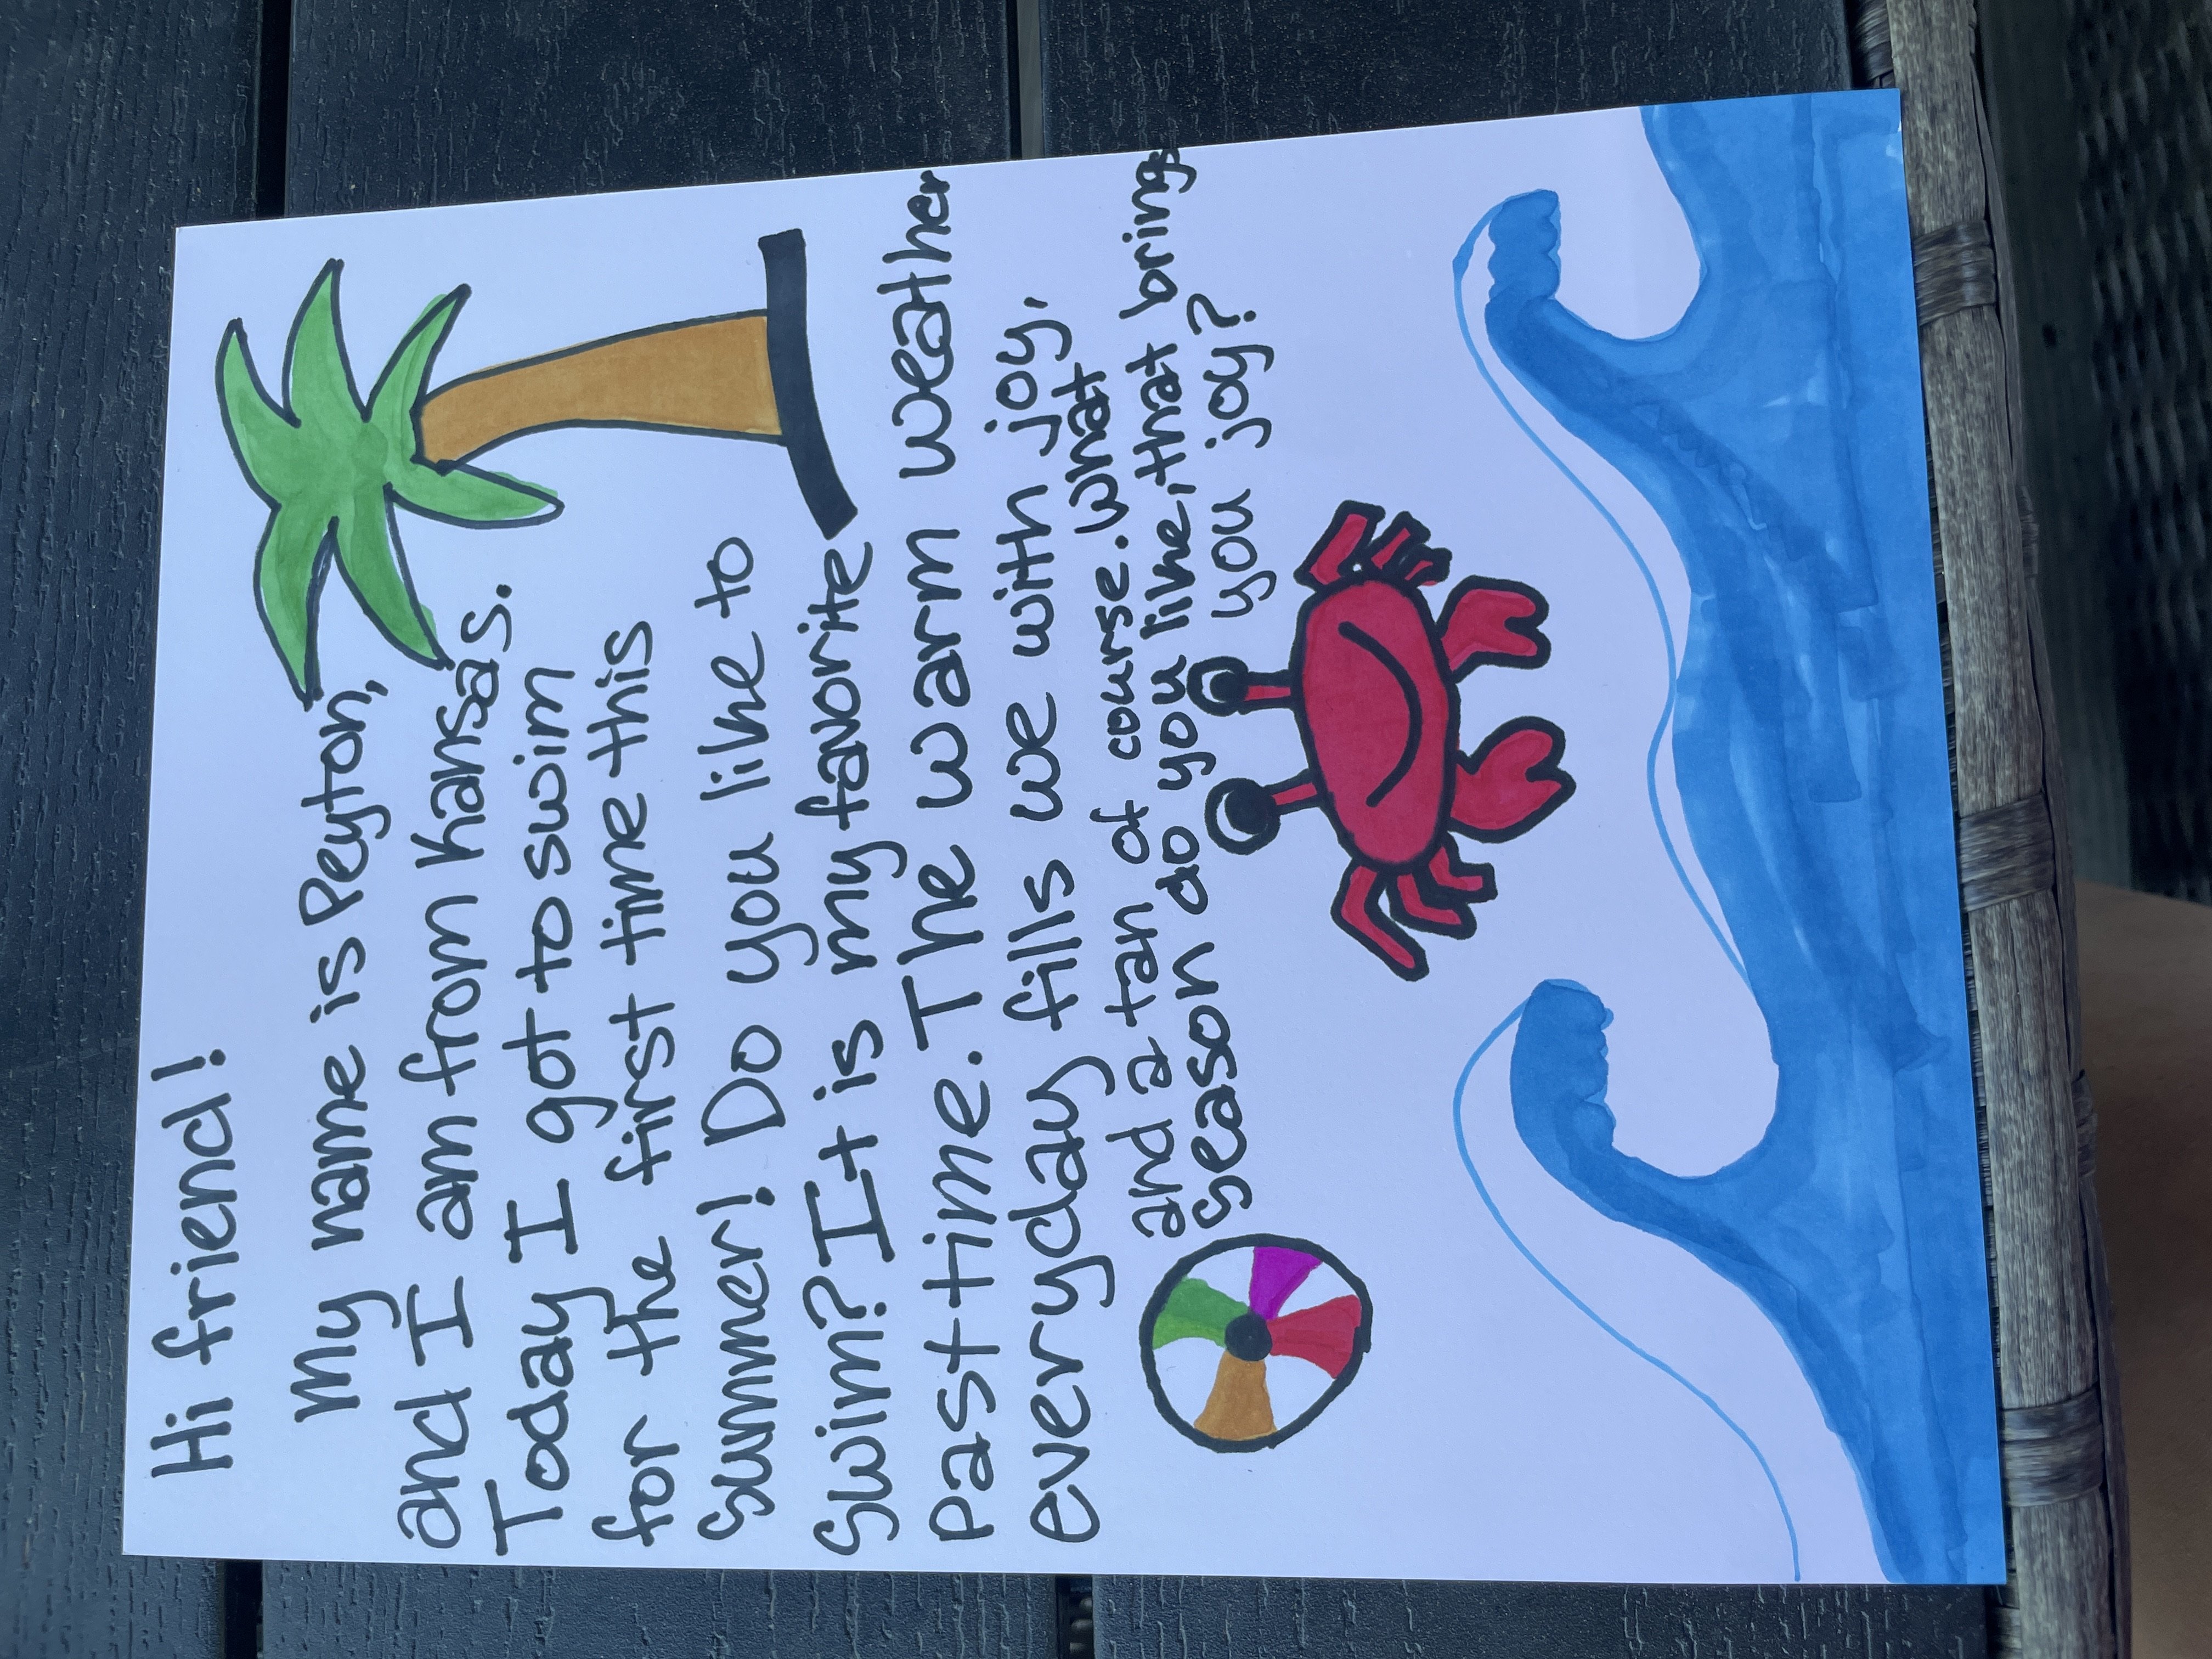 Hi friend!
My name is Peyton,
and I am from kansas.
Today I got to swim
for the first time this
summer! Do you like to
swim? It is my favorite
past time. The warm weather
everyday fills we with joy,
and a tan of course. What
season do you like, that brings
you joy?